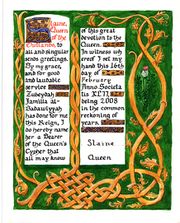 Slaine,
Queen
of the
Outlands, to
all and singular
sends greetings.
By my grace,
and for good
and laudable
service
Zubeydah
Jamilla al-
Badawiyyah
has done for me
this Reign, I
do hereby name
her a Bearer
of the Queen's
Cypher that
all may know
of this great
devotion to the
Queen.
In witness wh
ereof I set my
hand this 16th
day of
February
Anno Societa
tis XLII
being 2008
in the common
reckoning
of years.
Slaine
Queen